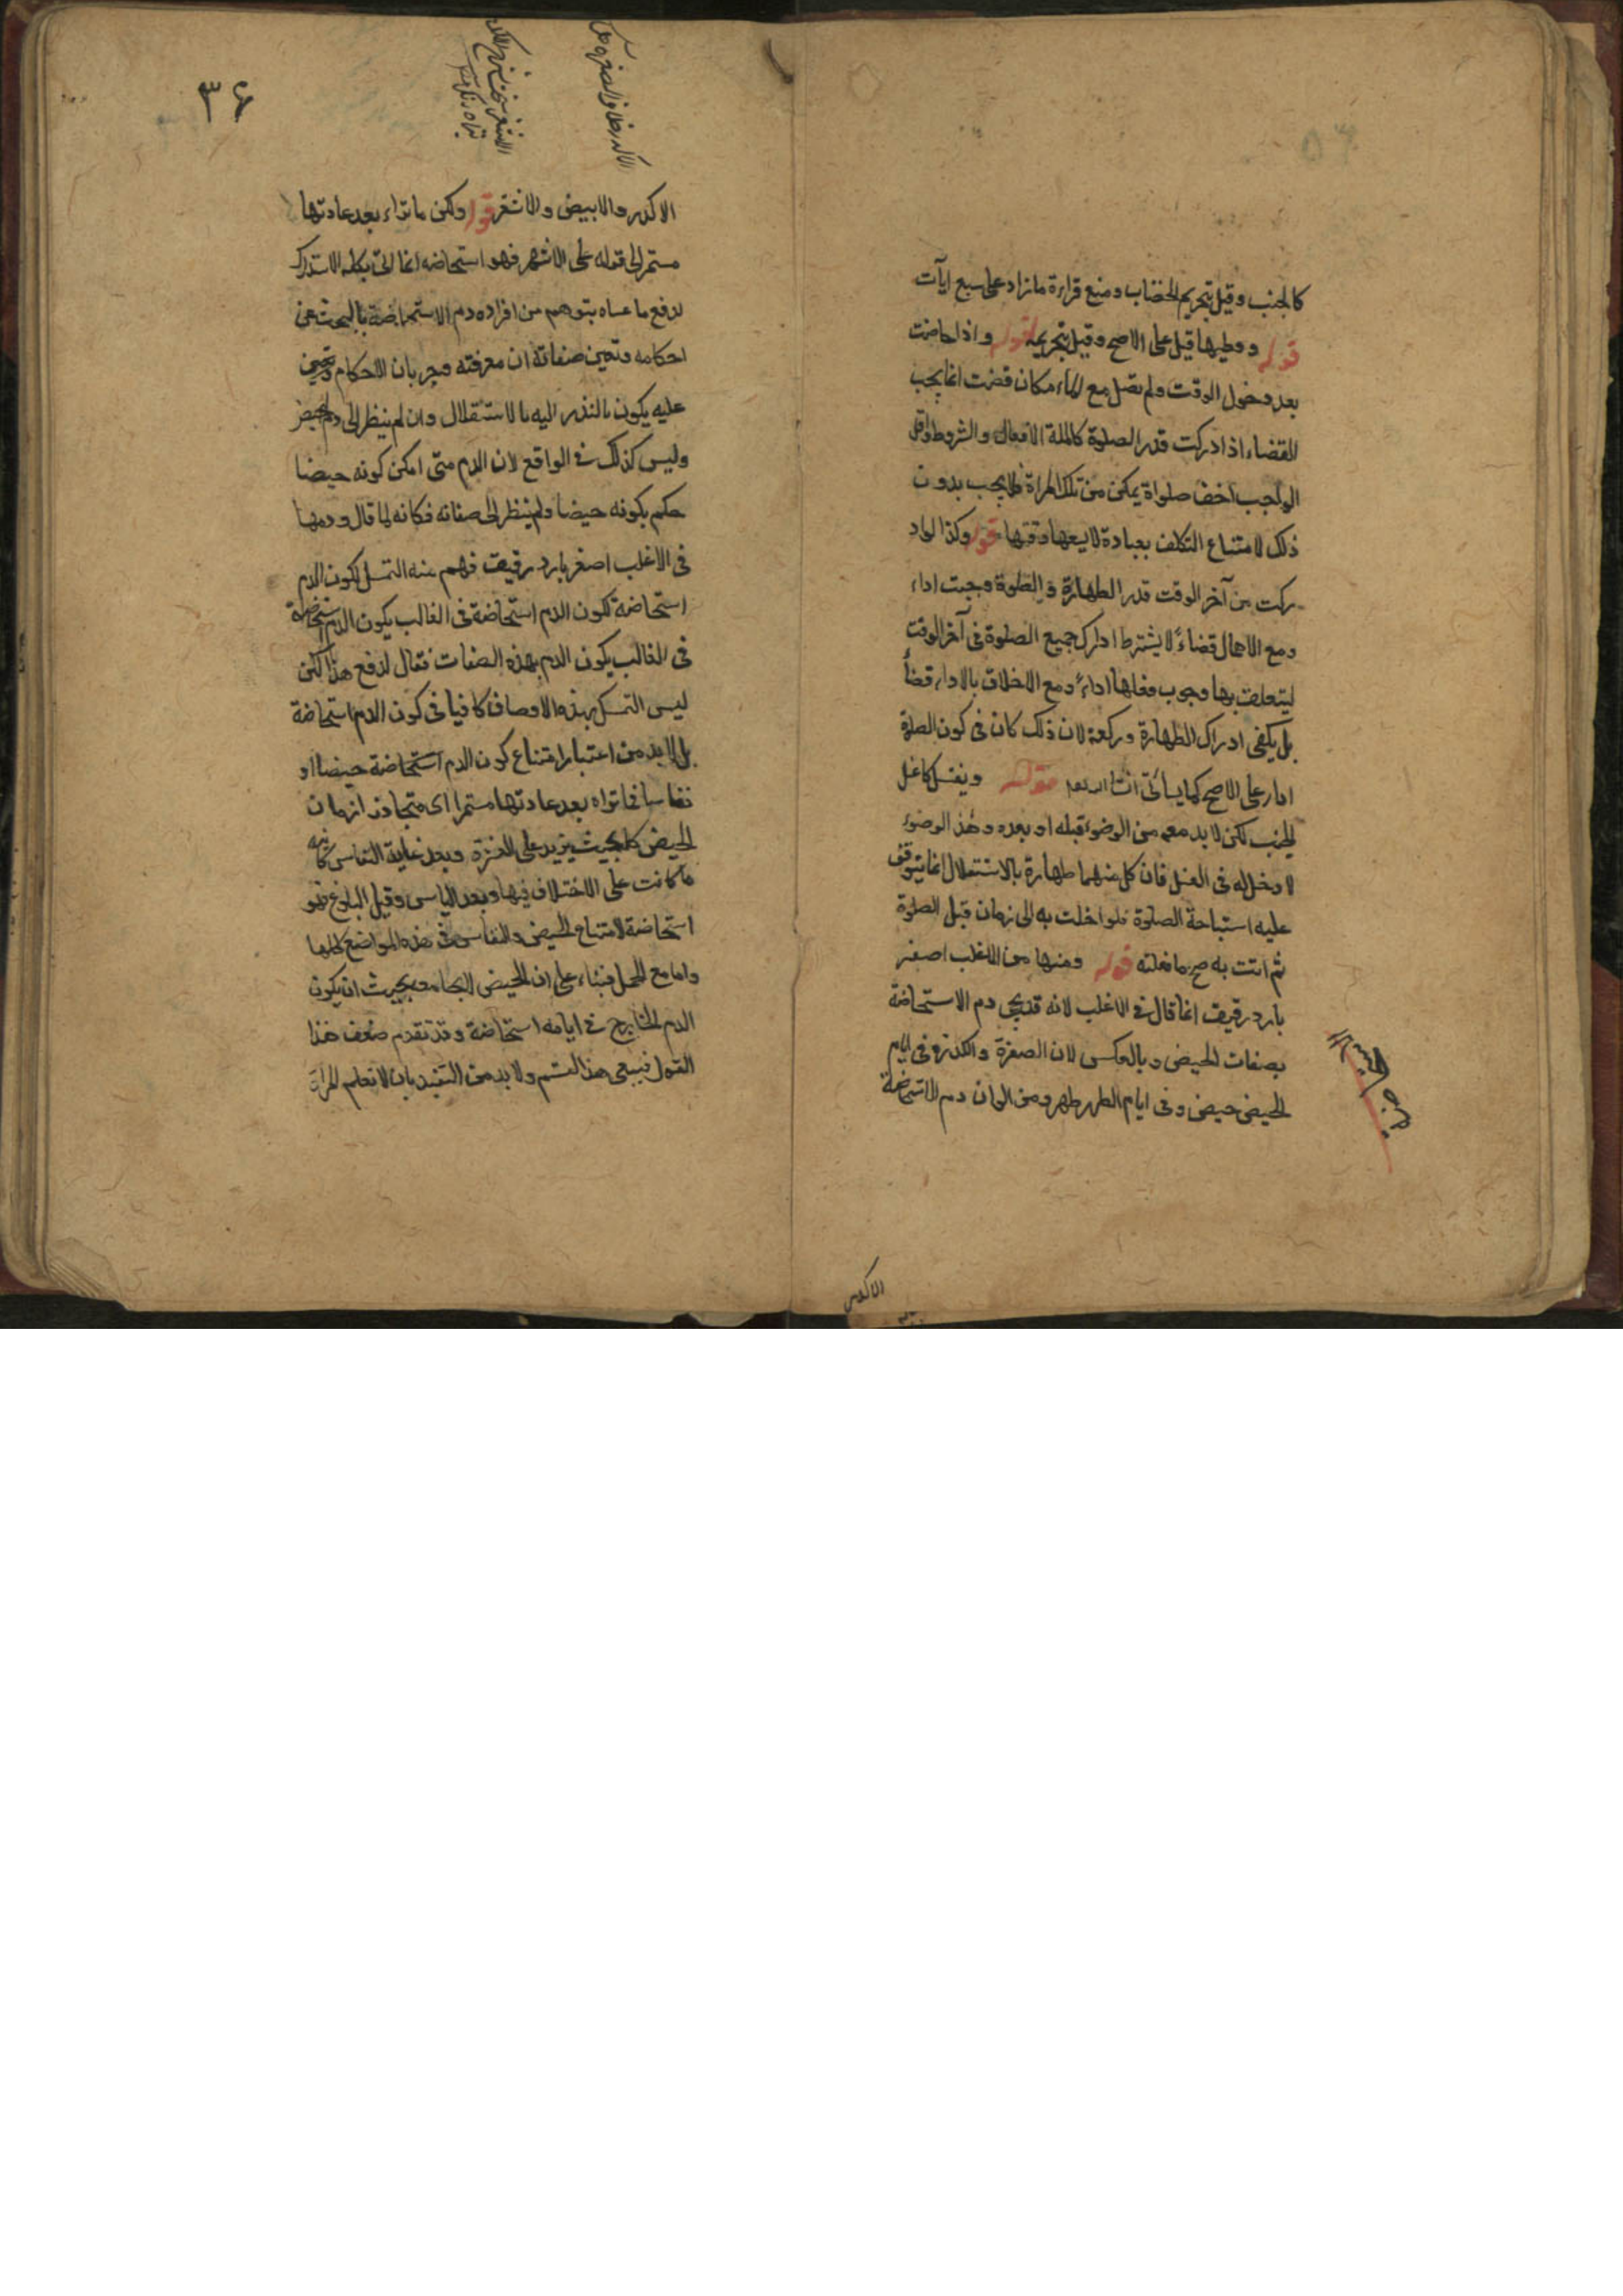 كالجنب وقيل بتحريم الخضاب ومنع قراءة ما زاد على سبع ايآت
قوله ووطيها قبل على الاصح وقيل بتحريمه قوله واذا حاضت
بعد دخول الوقت ولم تصل مع الامكان قضت انما يجب
القضاء اذا ادركت قدر الصلوة كاملة الافعال والشروط واقل
الواجب اخف صلواة يمكن من تلك المراة فلا يجب بدون
ذلك لامتناع التكلف بعبادة لا يسعها وقتها قوله وكذا لو اد
ركت من آخر الوقت قدر الطهارة والصلوة وجبت اداء
ومع الاهمال قضاءً لا يشترط ادراك جميع الصلوة فى آخر الوقت
ليتعلق بها وجوب فعلها اداءً ومع الاخلاق بالاداء قضأ
بل يكفى ادراك الطهارة وركعة لان ذلك كان فى كون الصلوة
اداء على الاصح كما يسأتى انشا الله تعم قوله ويغتسل كاغل
الجنب لكن لا بد معه من الوضوء قبله او بعده وهذ الوضوء
لا دخل له فى الغسل فان كل منهما طهارة بالاستقلال انما يتوقف
عليه استباحة الصلوة فلو اخلت به الى زمان قبل الصلوة
ثم اتت به صح ما فعلته قوله ومنها من الاغلب اصفر
بارد رقيق انما قال فى الاغلب لانه قد يجى دم الاستحاضة
بصفات الحيض وبالعكس لان الصفرة والكدرة فى ايام
الحيض حيض وفى ايام الطهر طهر ومن الوان دم الاستحاضة
الاكدر
٣٦
الاكدر والابيض والاشقر قوله ولكن ما تراء بعد عادتها
مستمر الى قوله على الاشهر فهو استحاضه انما اتى بكلمه الاستدراك
لدفع ما عساه يتوهم من افراده دم الاستحاضة بالبحث عن
احكامه وتعين صفاته ان معرفته وجريان الاحكام
عليه يكون بالنذر اليه بالاستقلال وان لم ينظر الى دم الحيض
وليس كذلك فى الواقع لان الدم متى امكن كونه حيضا
حكم بكونه حيضا ولم ينظر الى صفاته فكانه لما قال ودمها
فى الاغلب اصفر بارد رقيق فهم منه التمسك لكون الدم
استحاضة لكون الدم استحاضة فى الغالب يكون الدم استحاضة
فى الغالب يكون الدم بهذه الصفات فقال لدفع هذا لكن
ليس التمسك بهذه الاوصاف كافيا فى كون الدم استحاضة
بل لا بد من اعتبار امتناع كون الدم استحاضة حيضا او
نفاسا فما تراه بعد عادتها مستمرا اى متجاوز ازمان
الحيض كله بحيث يزيد على العشرة وبعد غاية النفاس كائنه
ما كانت على الاختلاف فيها وبعد الياس وقبل البلوغ فهو
استحاضة لامتناع الحيض والنفاس فى هذه المواضع كلها
واما مع الحمل فبناء على ان الحيض لايجامعه بحيث ان يكون
الدم الخارج فى ايامه استحاضة وقد تقدم ضعف هذا
القول فيبقى هذا القسم ولا بد من التقييد بان لا تعلم المراة